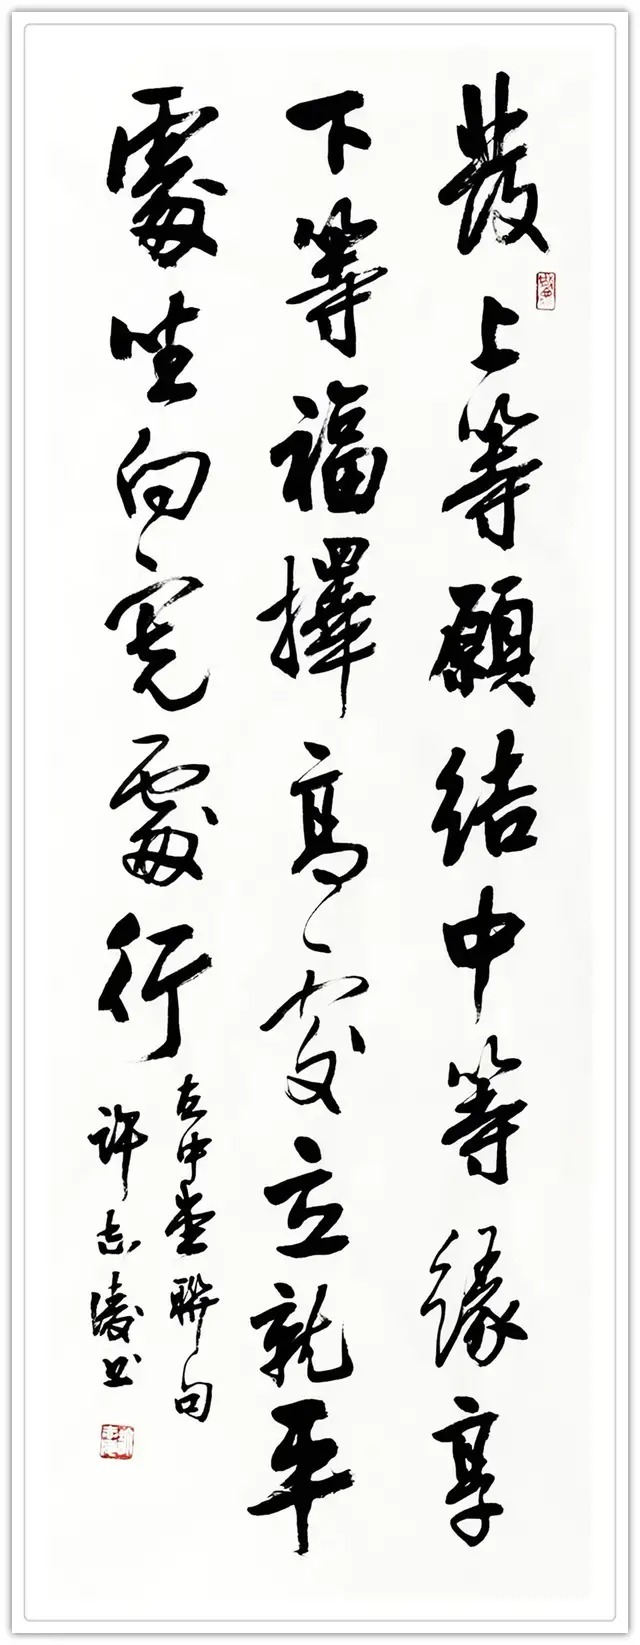 發上等願結中等緣享
下等福擇高處立就平
處坐向寬處行
左中堂聯句
許志凌书